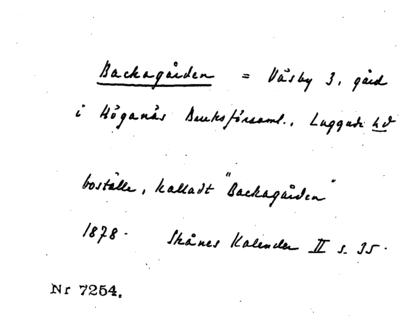 Backagården = Väsby 3, gård
i Höganäs Bruksförsaml., Luggude hd
boställe, kalladt "Backagården"
1878. Skånes Kalender II s. 35.
Nr 7254.